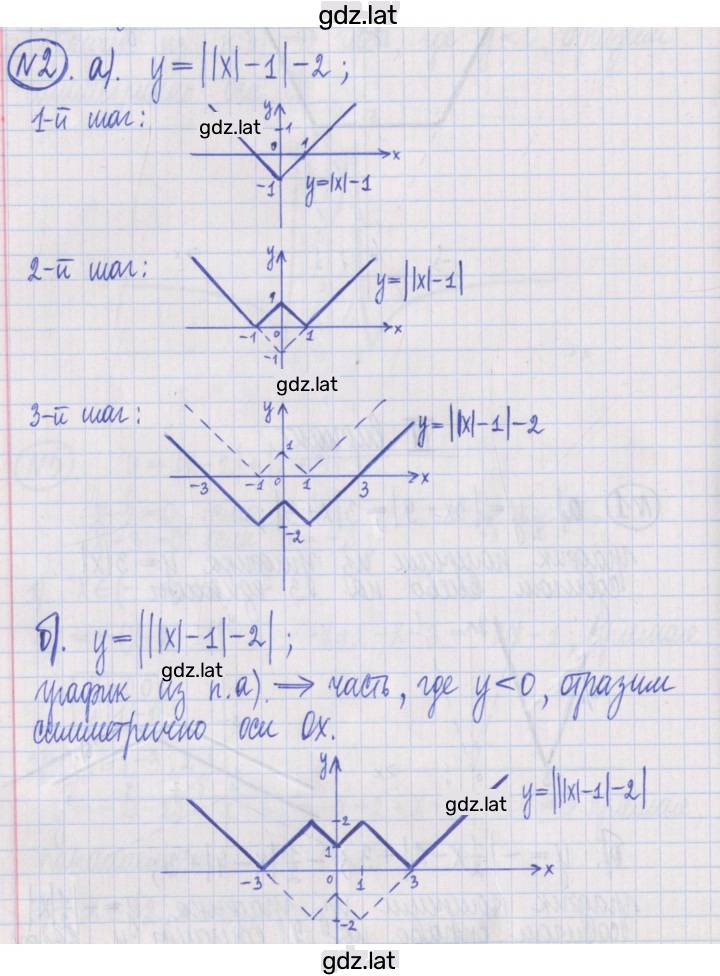 gdz.lat
№2. а). y=||x|-1|-2;
1-й шаг:
y
gdz.lat
1
0
1
x
-1
y=|x|-1
2-й шаг:
y
y=||x|-1|
1
-1
0
1
x
-1
gdz.lat
3-й шаг:
y
y=||x|-1|-2
1
-3
-1
0
1
3
x
-2
б). y=|||x|-1|-2|;
gdz.lat
график из п.а). ⇒ часть, где y<0, отразим
симметрично оси Ox.
y
gdz.lat
y=|||x|-1|-2|
2
1
-3
0
1
3
x
-2
gdz.lat